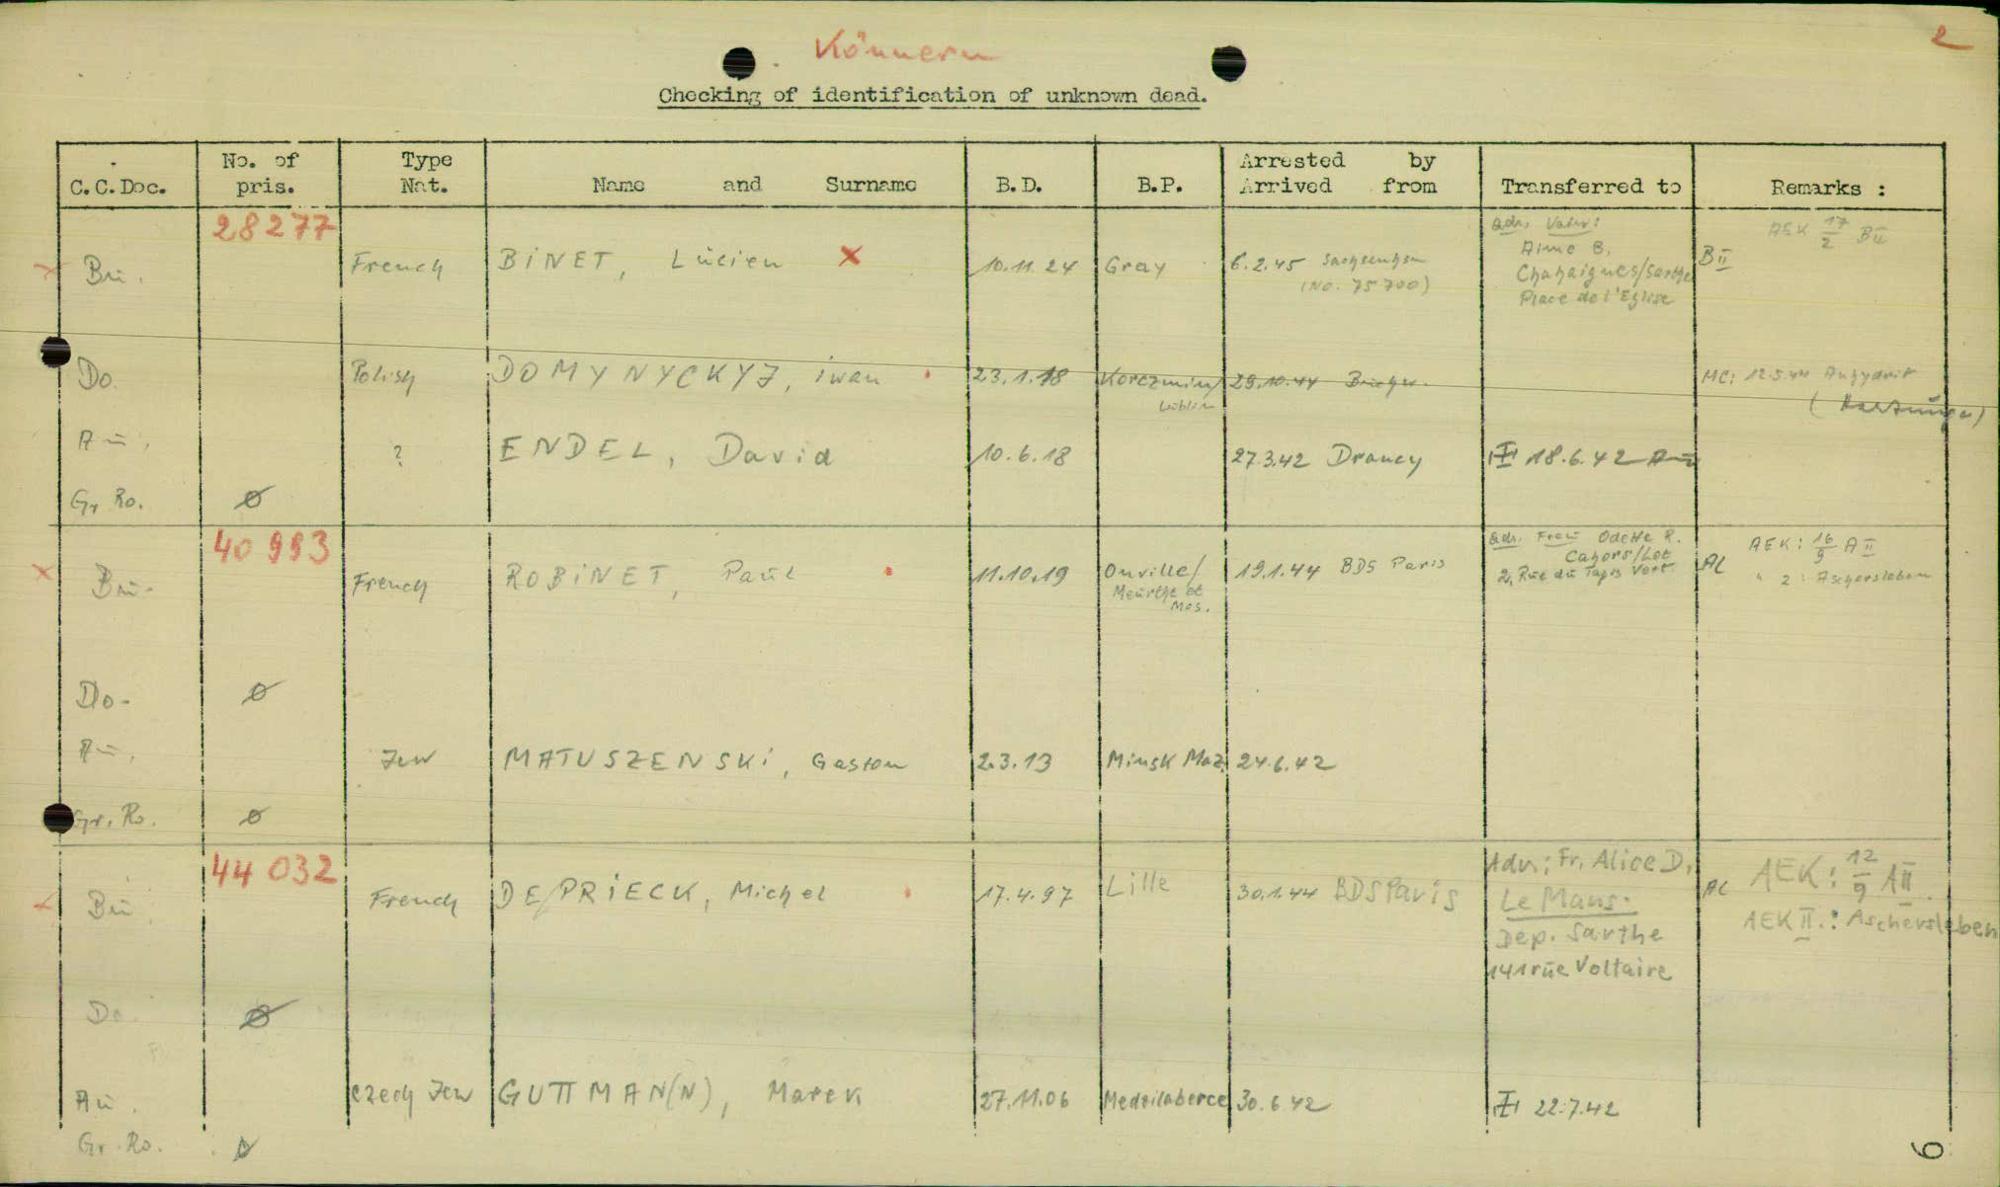 Könnern
2
Checking of identification of unknown dead.
C.C.Doc.
No. of pris.
Type Nat.
Name and Surname
B.D.
B.P.
Arrested by
Arrived from
Transferred to
Remarks :
28277
Bu. French BINET, Lucien x 10.11.24 Gray 6.2.45 Sachsenhsn (No. 75700)
Adr. Vater:
Aime B.
Chahaignes/Sarthe
Place de l'Eglise
BII
AEK 17/2 BII
Do. Polish DOMYNYCKYJ, Iwan 23.1.18 Korczmin/ Lublin 29.10.44 MC: 12.5.44 Anhydrit
Au. ? ENDEL, David 10.6.18 27.3.42 Drancy 18.6.42 Au
Gr. Ro. ø
40993
Bu. French ROBINET, Paul 11.10.19 Onville/ Meurthe et Mos. 19.1.44 BDS Paris
Adr. Frau Odette R.
Cahors/Lot
2, Rue du Tapis Vert.
AL
AEK: 16/9 AII
" 2: Aschersleben
Do. ø
Au. Jew MATUSZENSKI, Gaston 2.3.13 Minsk Maz. 24.6.42
Gr. Ro. ø
44032
Bu. French DE/PRIECK, Michel 17.4.97 Lille 30.1.44 BDS Paris
Adr.: Fr. Alice D.
Le Mans.
Dep. Sarthe
141 rue Voltaire
AL
AEK: 12/9 AII
AEK II.: Aschersleben
Do. ø
Au. Czech Jew GUTTMAN(N), Marek 27.11.06 Medzilaberce 30.6.42 22.7.42
Gr. Ro.
6